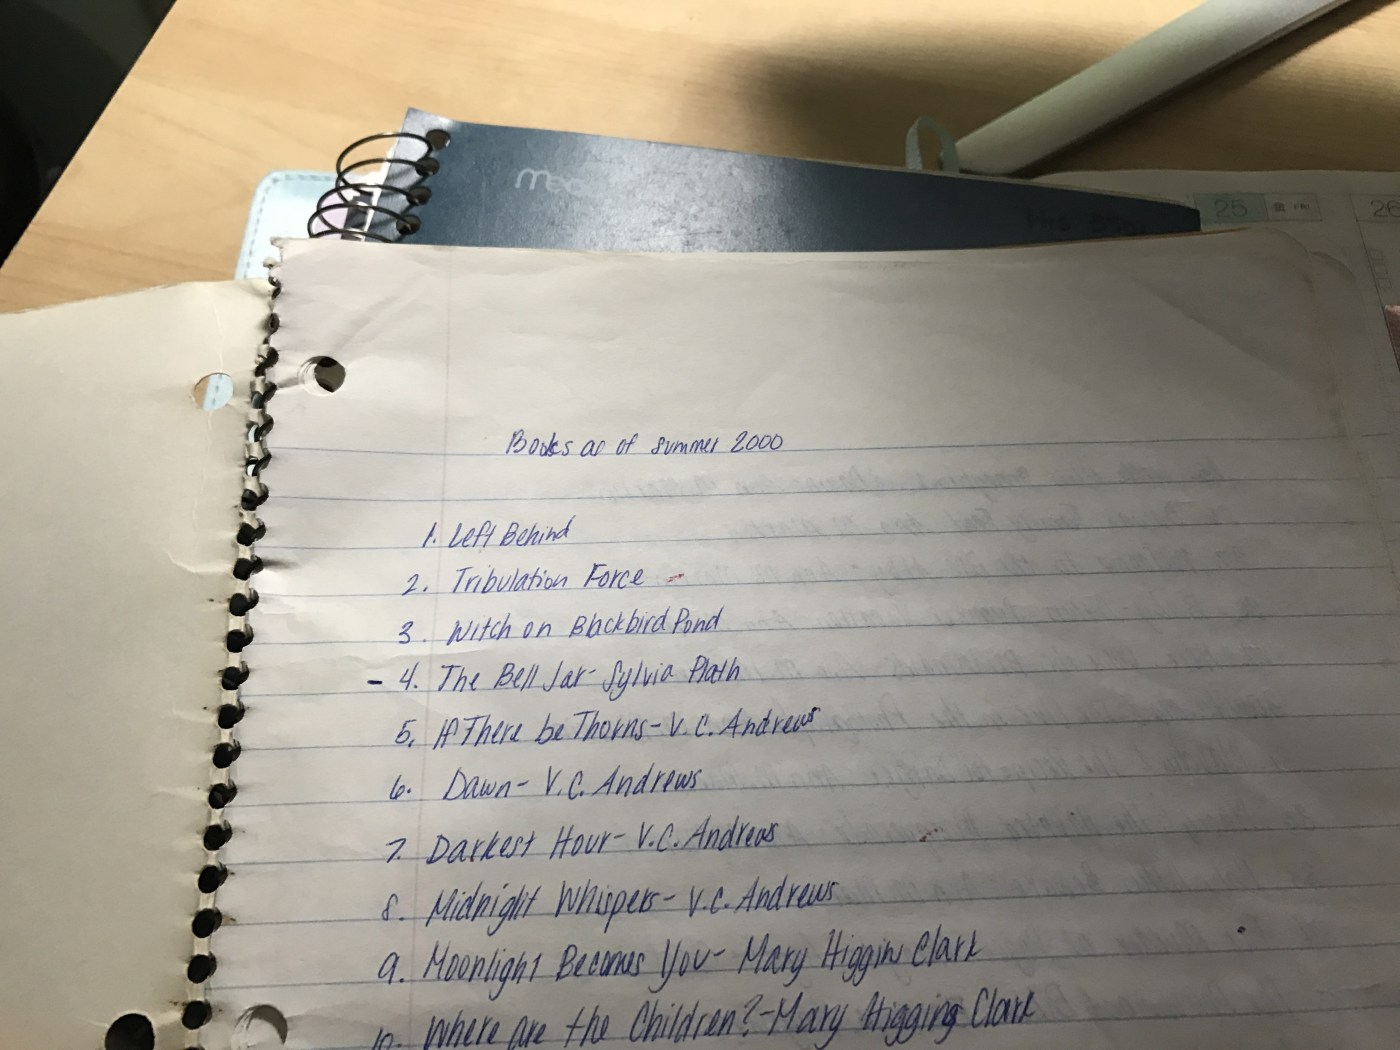 mea
25
26
Books as of summer 2000
1. Left Behind
2. Tribulation Force
3. Witch on Blackbird Pond
- 4. The Bell Jar - Sylvia Plath
5. If There be Thorns - V.C. Andrews
6. Dawn - V.C. Andrews
7. Darkest Hour - V.C. Andrews
8. Midnight Whispers - V.C. Andrews
9. Moonlight Becomes You - Mary Higgins Clark
10. Where are the Children? - Mary Higgins Clark